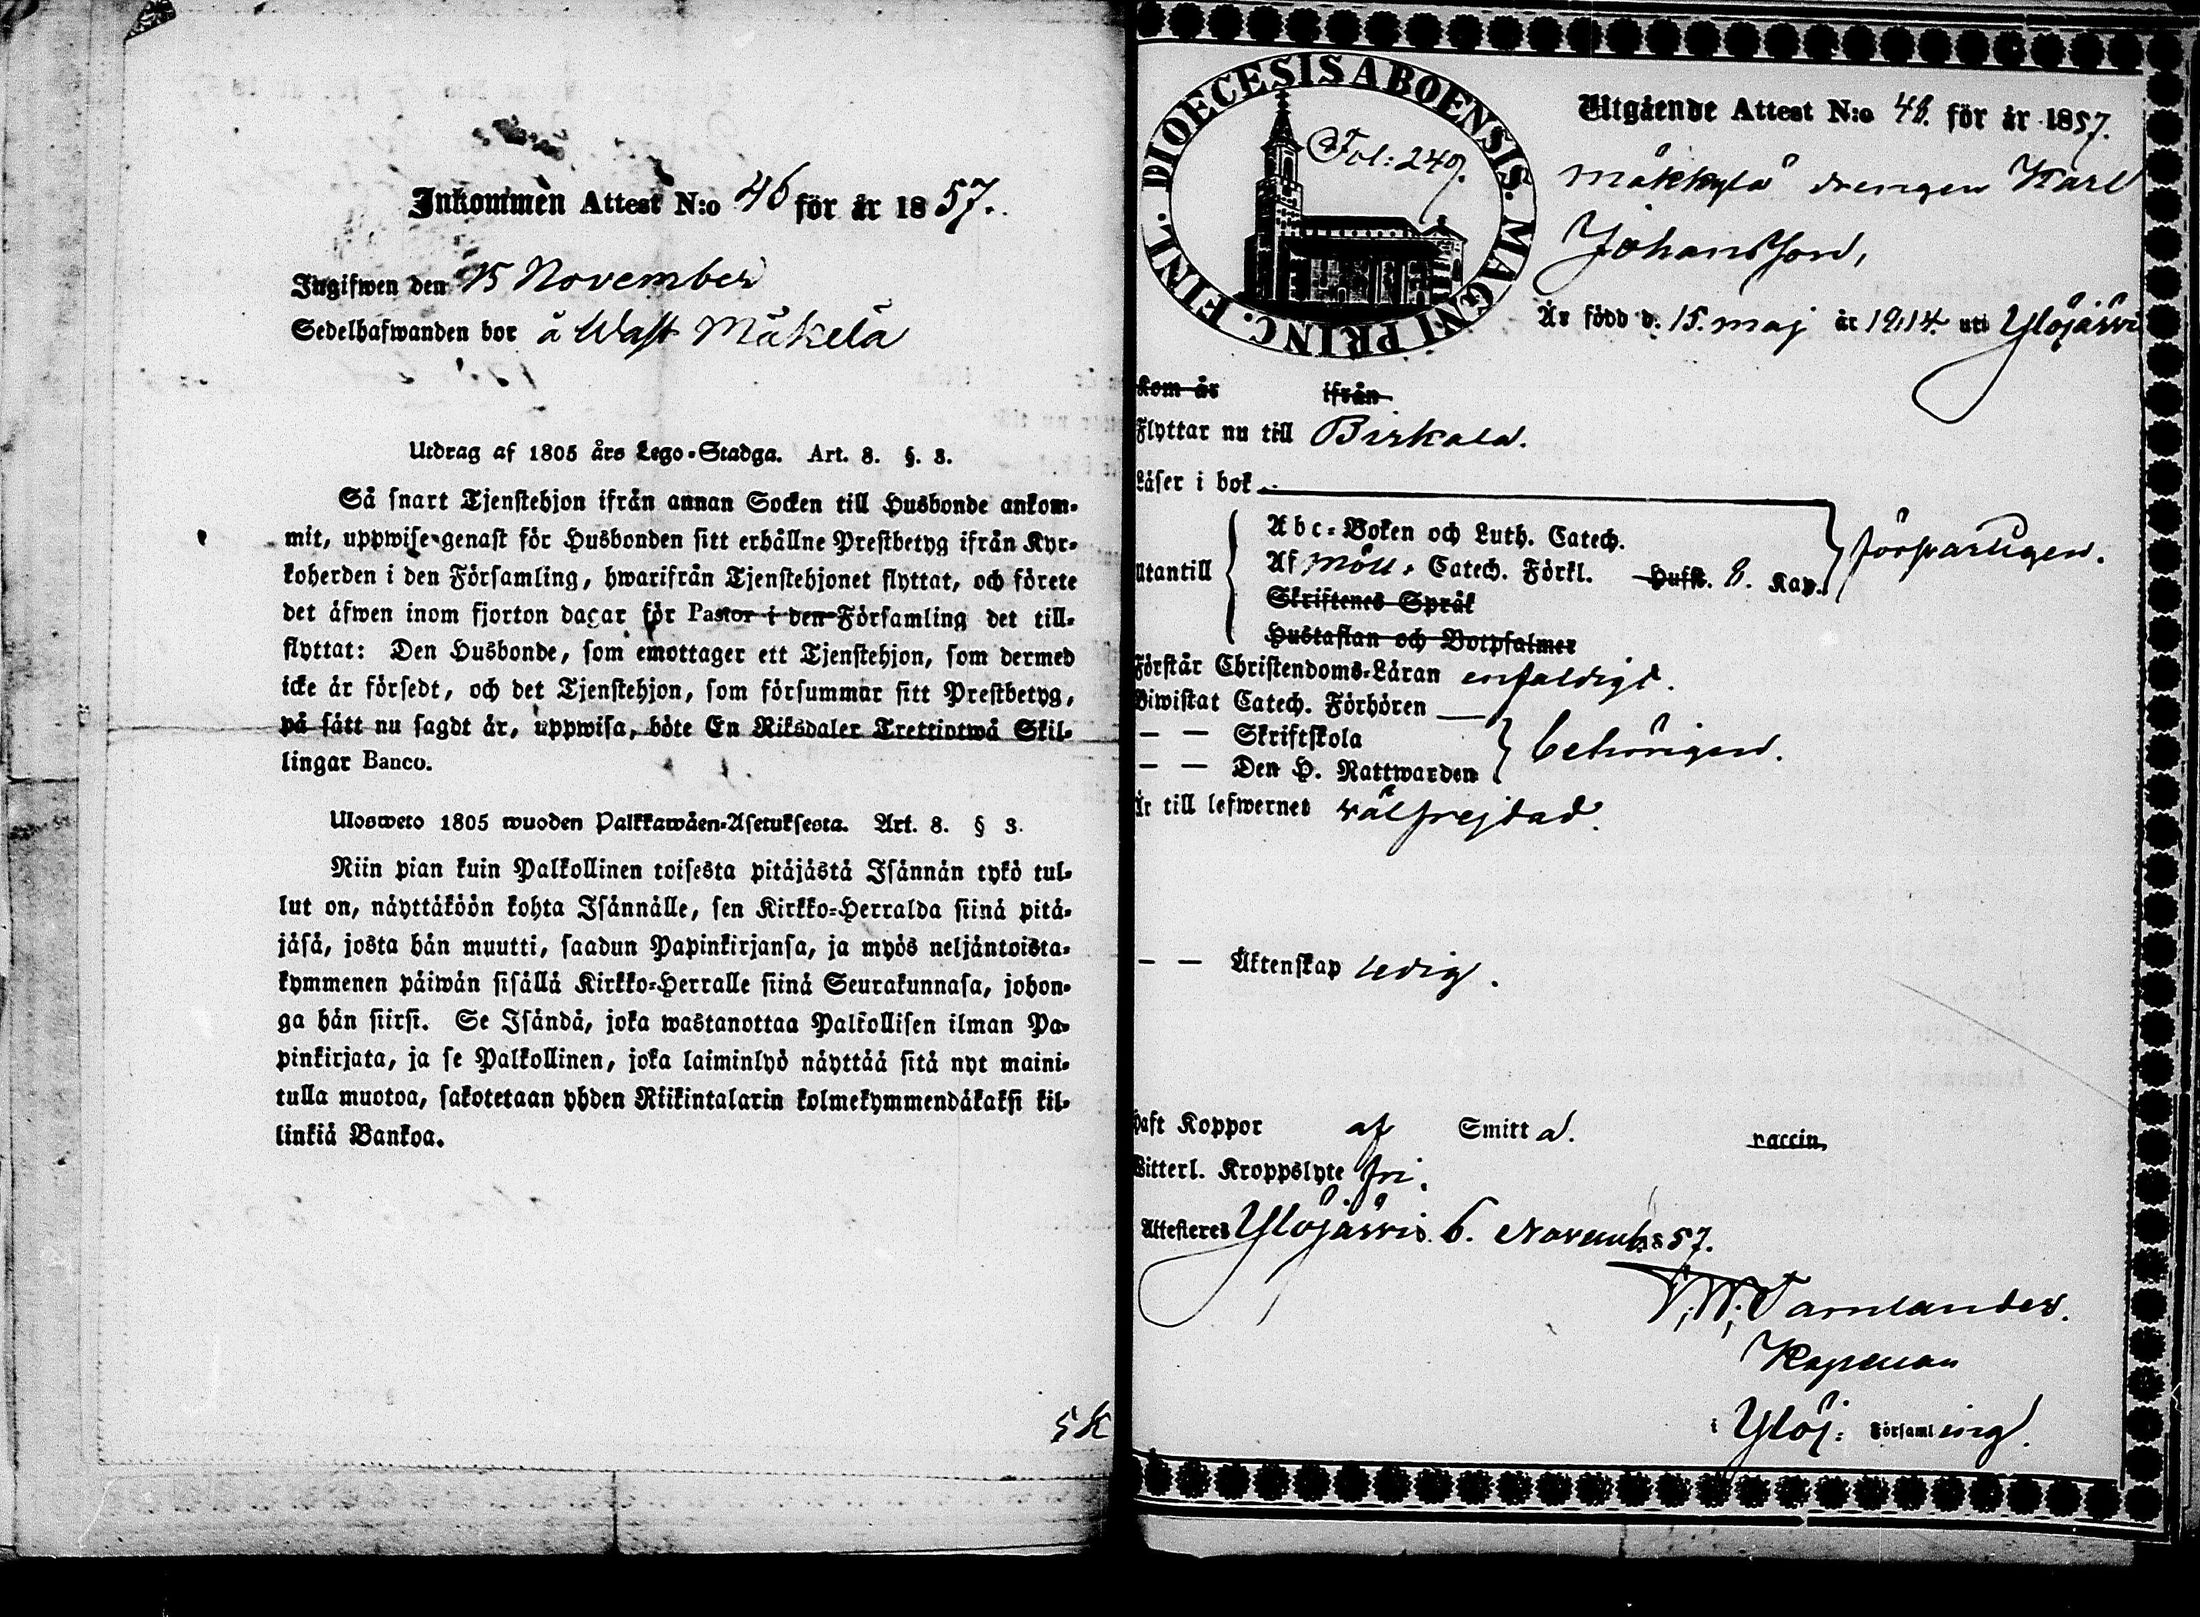 Inkommen Attest N:o 46 för år 1857.
Ingifwen den 15 November
Sedelhafwanden bor å Wast Mäkelä
Utdrag af 1805 års Lego-Stadga. Art. 8. §. 3.
Så snart Tjenstehjon ifrån annan Socken till Husbonde ankom-
mit, uppwise genast för Husbonden sitt erhållne Prestbetyg ifrån Kyr-
koherden i den Församling, hwarifrån Tjenstehjonet flyttat, och förete
det äfwen inom fjorton dagar för Pastor i den Församling det till-
flyttat: Den Husbonde, som emottager ett Tjenstehjon, som dermed
icke är försedt, och det Tjenstehjon, som försummar sitt Prestbetyg,
på sätt nu sagdt är, uppwisa, böte En Riksdaler Trettiotwå Skil-
lingar Banco.
Ulosweto 1805 wuoden Palkkawäen-Asetuksesta. Art. 8. § 3.
Niin pian kuin Palkollinen toisesta pitäjästä Isännän tykö tul-
lut on, näyttäköön kohta Isännälle, sen Kirkko-Herralda siinä pitä-
jäsä, josta hän muutti, saadun Papinkirjansa, ja myös neljäntoista-
kymmenen päiwän sisällä Kirkko-Herralle siinä Seurakunnasa, johon-
ga hän siirsi. Se Isändä, joka wastanottaa Palkollisen ilman Pa-
pinkirjata, ja se Palkollinen, joka laiminlyö näyttää sitä nyt maini-
tulla muotoa, sakotetaan yhden Riikintalarin kolmekymmendäkaksi kil-
linkiä Bankoa.
5 K
FINL. DIOECESIS ABOENSIS. MAGNI PRINC.
Fol: 249.
Utgående Attest N:o 48. för år 1857.
Mäkkylä drengen Karl
Johansson,
Är född d. 15. maj år 1814. uti Ylöjärvi
Kom år ifrån
Flyttar nu till Birkala.
Läser i bok
Utantill
Abc-Boken och Luth. Catech.
Af Möll. Catech. Förkl. Husst. 8. Kap.
förswarligen.
Skriftenes Språk
Hustaflan och Botpsalmer
Förstår Christendoms-Läran enfaldigt.
Biwistat Catech. Förhören
— — Skriftskola
behörigen.
— — Den H. Nattwarden
Är till lefwernet välfrejdad.
— — Äktenskap ledig.
Haft Koppor af Smitta. vaccin,
Witterl. Kroppslyte fri.
Attesteres Ylöjärvi d. 6. Novemb. 1857.
Tarnlander.
Kapellan
i Ylöj: Församling.